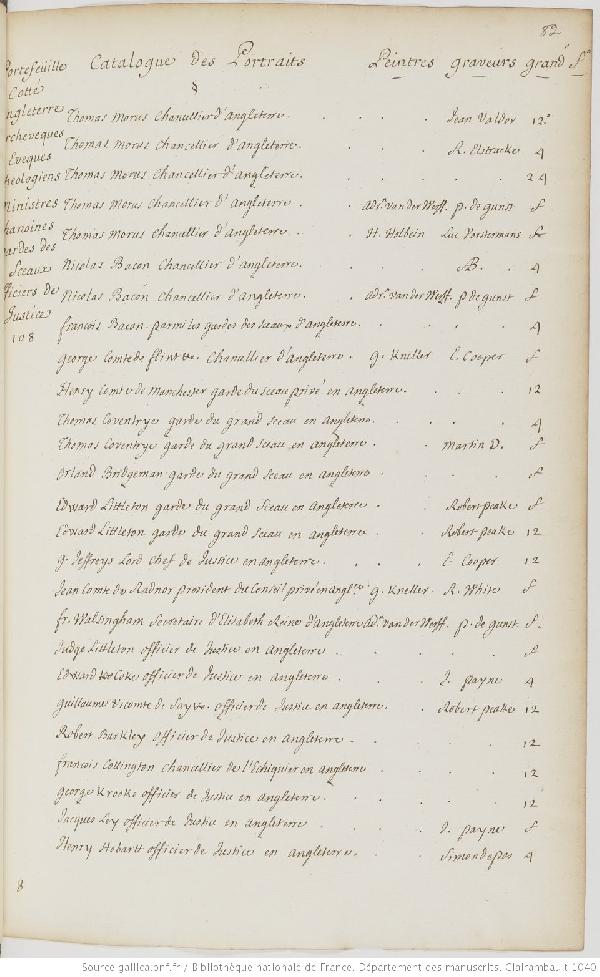 82
Catalogue des Portraits Peintres graveurs grandr fo
§
Portefeuille
Cotté
Angleterre
Archeveques
Eveques
Theologiens
Ministres
Chanoines
Gardes des
Sceaux
officiers de
Justice
108
Thomas Morus Chancellier d'Angleterre . . . . Jean Valdor 12o
Thomas Morus Chancellier d'Angleterre . . . . R. Elstracke 4
Thomas Morus Chancellier d'Angleterre . . . . . 24
Thomas Morus Chancellier d'Angleterre . . adr. van der Werff. p. de gunst f
Thomas Morus Chancellier d'Angleterre . . H. Holbein Luc Vorstermans f
Nicolas Bacon Chancellier d'Angleterre . . . AB. . 4
Nicolas Bacon Chancellier d'Angleterre . . adr. van der Werff. p de gunst f
francois Bacon parmi les gardes des sceaux d'Angleterre . . . . 4
george Comte de flint &c. Chancellier d'Angleterre . g. Kneller C. Cooper f
Henry Comte de Manchester garde du sceau privé en Angleterre . . . . 12
Thomas Coventrye garde du grand sceau en Angleterre . . . . 4
Thomas Coventrye garde du grand sceau en Angleterre . . Martin D. f
Orland Bridgeman garde du grand sceau en Angleterre . . . f
Edward Littleton garde du grand sceau en Angleterre . . Robert peake f
Edward Littleton garde du grand sceau en Angleterre . . Robert peake 12
g. Jeffreys Lord Chef de Justice en angleterre . . . . C. Cooper 12
Jean Comte de Radnor president du Conseil privé en anglre g. Kneller. R. White f
fr. Walsingham Secretaire d'Elisabeth Reine d'Angleterre adr. van der Werff. p. de gunst f.
Judge Littleton officier de Justice en Angleterre . . . . f
Edward Coke officier de Justice en Angleterre . . . J. payne 4
guillaume Vicomte de Say &c. officier de Justice en angleterre . . Robert peake 12
Robert Barkley officier de Justice en Angleterre . . . . 12
francois Cottington Chancellier de l'Echiquier en angleterre . . . 12
george Krooke officier de Justice en Angleterre . . . . 12
Jacques Ley officier de Justice en Angleterre . . . J. payne f
Henry Hobartt officier de Justice en Angleterre . . . Simon de pas 4
8
Source gallica.bnf.fr / Bibliothèque nationale de France. Département des manuscrits. Clairambault 1040